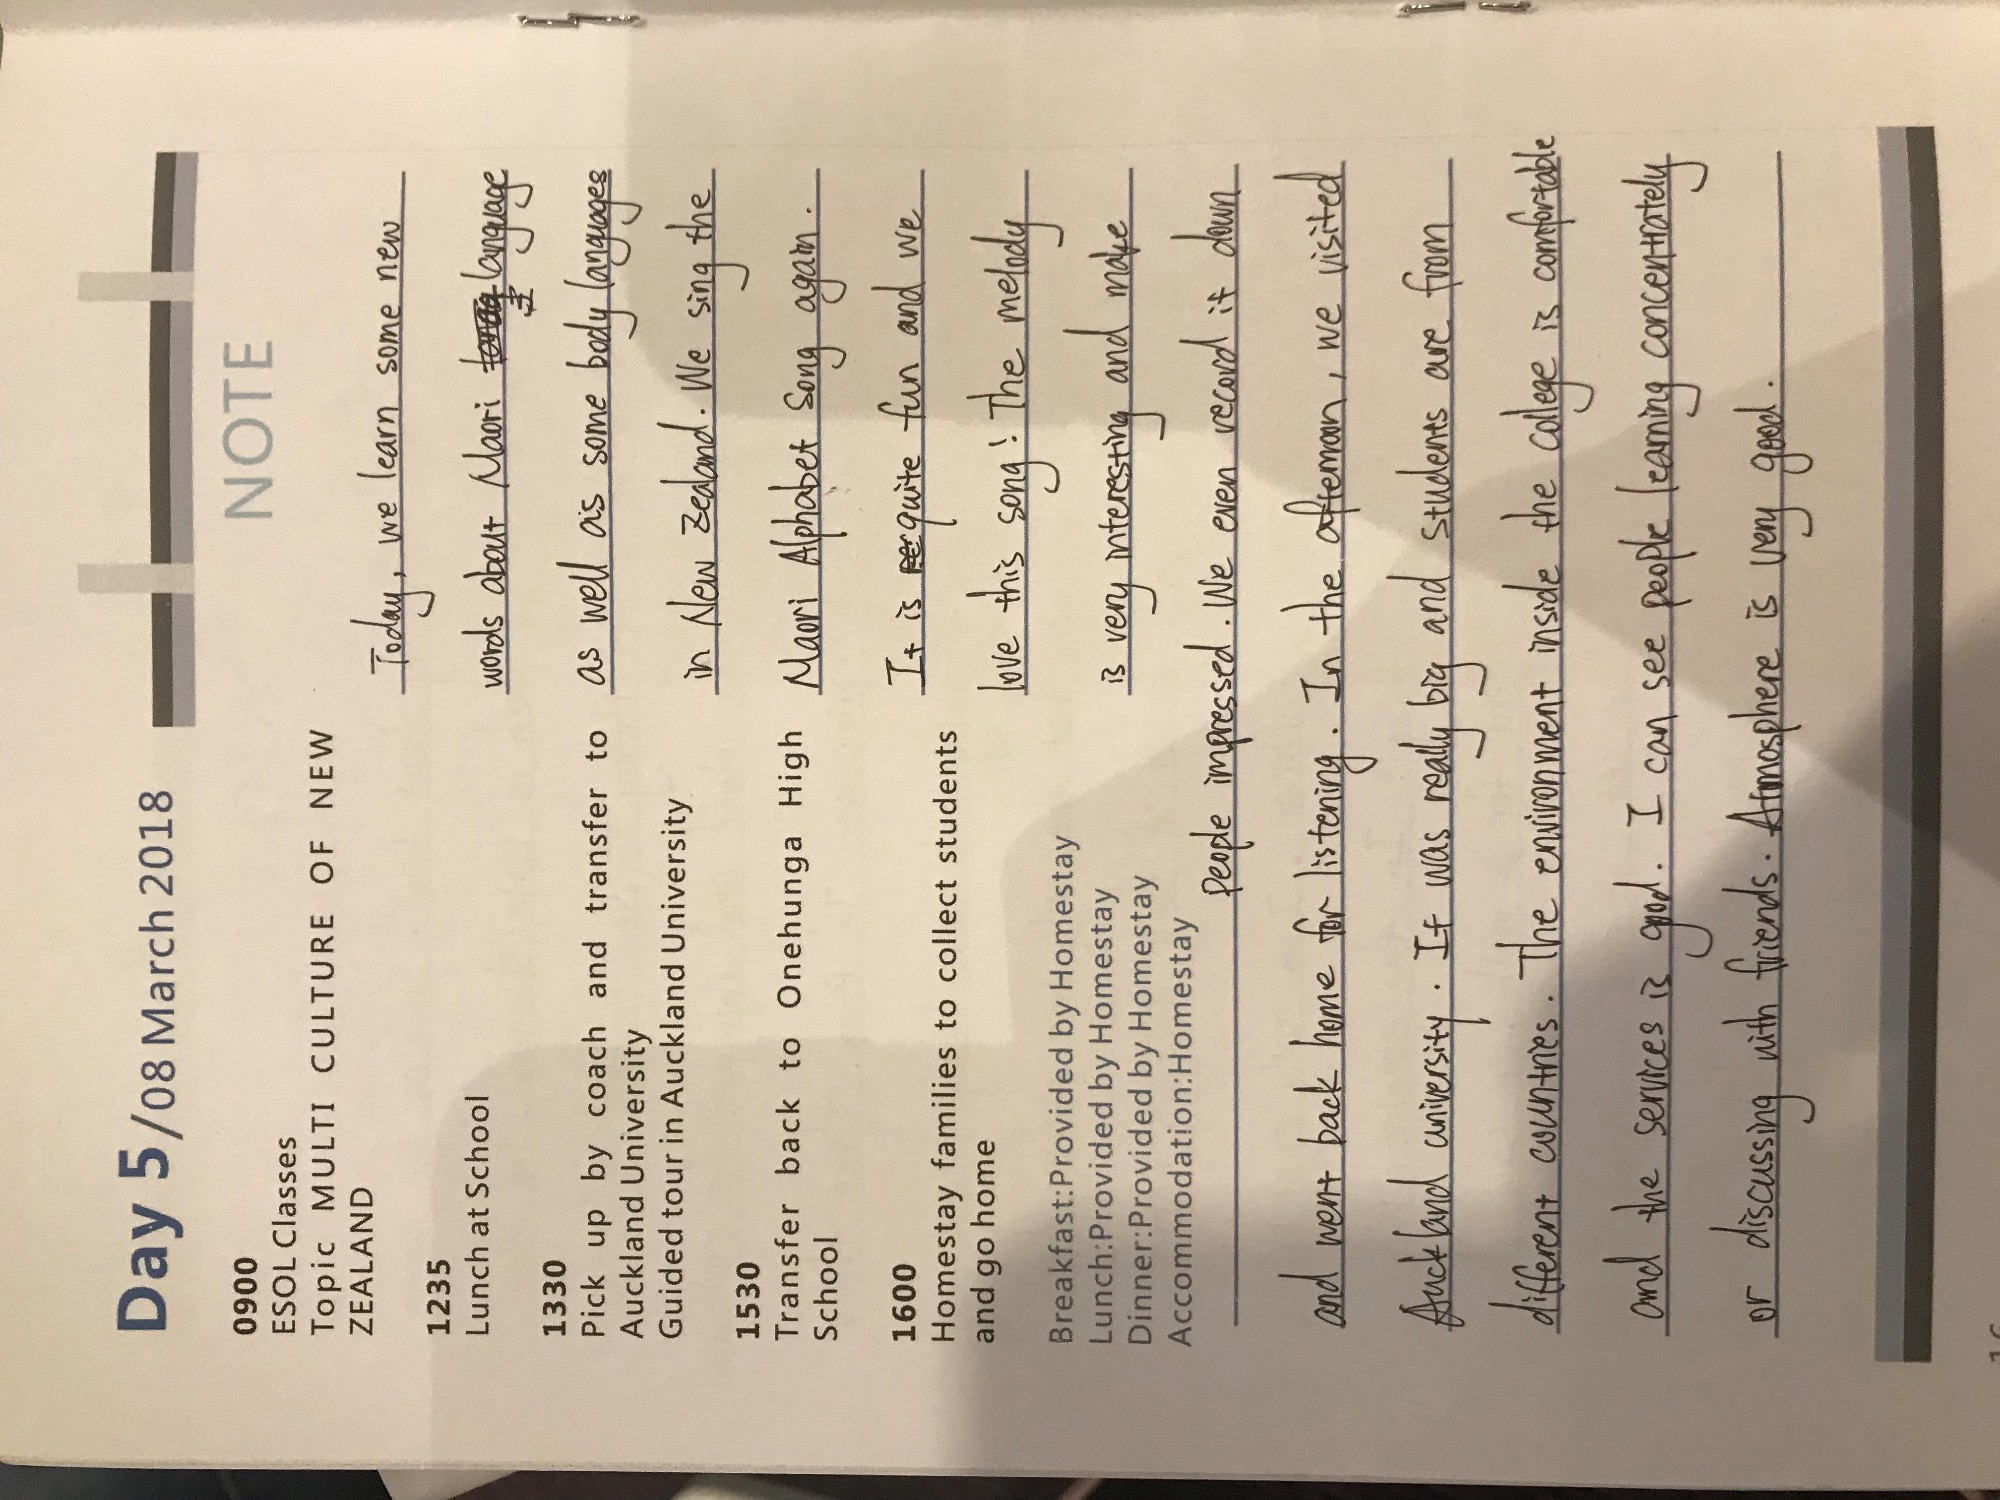 Day 5/08 March 2018
0900
ESOL Classes
Topic MULTI CULTURE OF NEW
ZEALAND
1235
Lunch at School
1330
Pick up by coach and transfer to
Auckland University
Guided tour in Auckland University
1530
Transfer back to Onehunga High
School
1600
Homestay families to collect students
and go home
Breakfast:Provided by Homestay
Lunch:Provided by Homestay
Dinner:Provided by Homestay
Accommodation:Homestay
NOTE
Today, we learn some new
words about Maori language
as well as some body languages
in New Zealand. We sing the
Maori Alphabet Song again.
It is quite fun and we
love this song! The melody
is very interesting and make
people impressed. We even record it down
and went back home for listening. In the afternoon, we visited
Auckland university. It was really big and students are from
different countries. The environment inside the college is comfortable
and the services is good. I can see people learning concentrately
or discussing with friends. Atmosphere is very good.